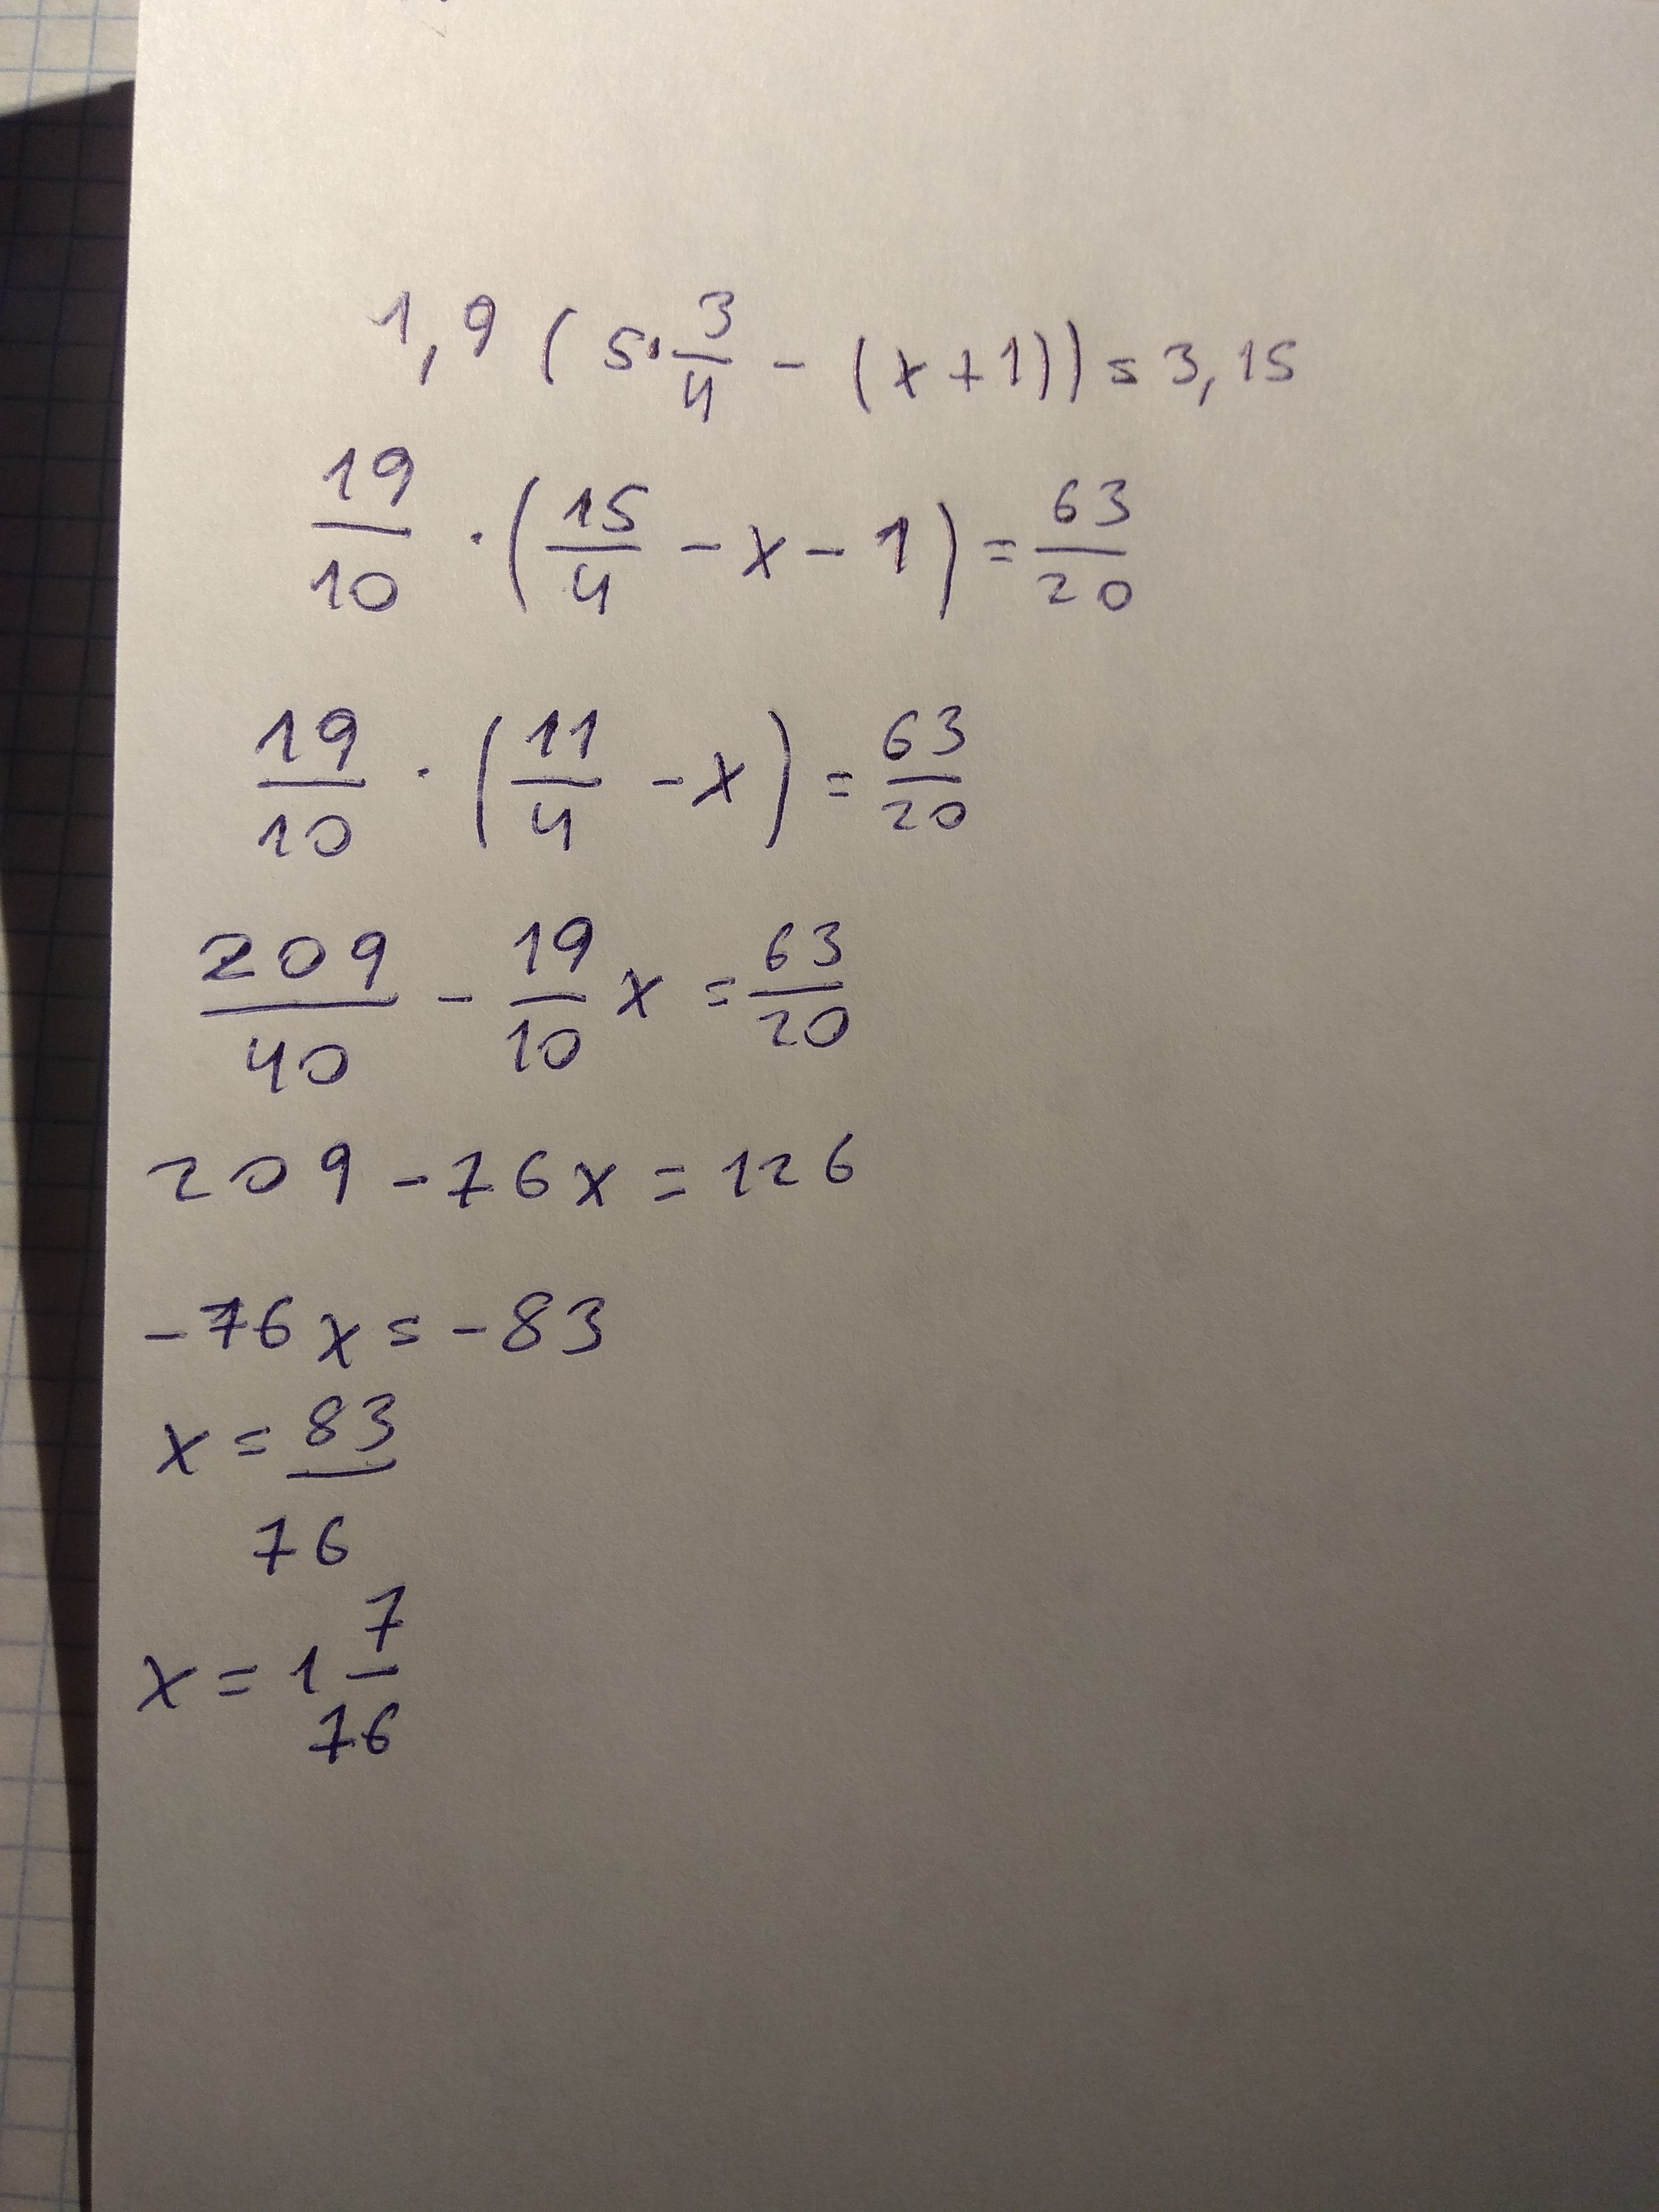 1,9 ( 5 · 3/4 - (x+1)) = 3,15
19/10 · (15/4 - x - 1) = 63/20
19/10 · (11/4 - x) = 63/20
209/40 - 19/10 x = 63/20
209 - 76x = 126
-76x = -83
x = 83/76
x = 1 7/76